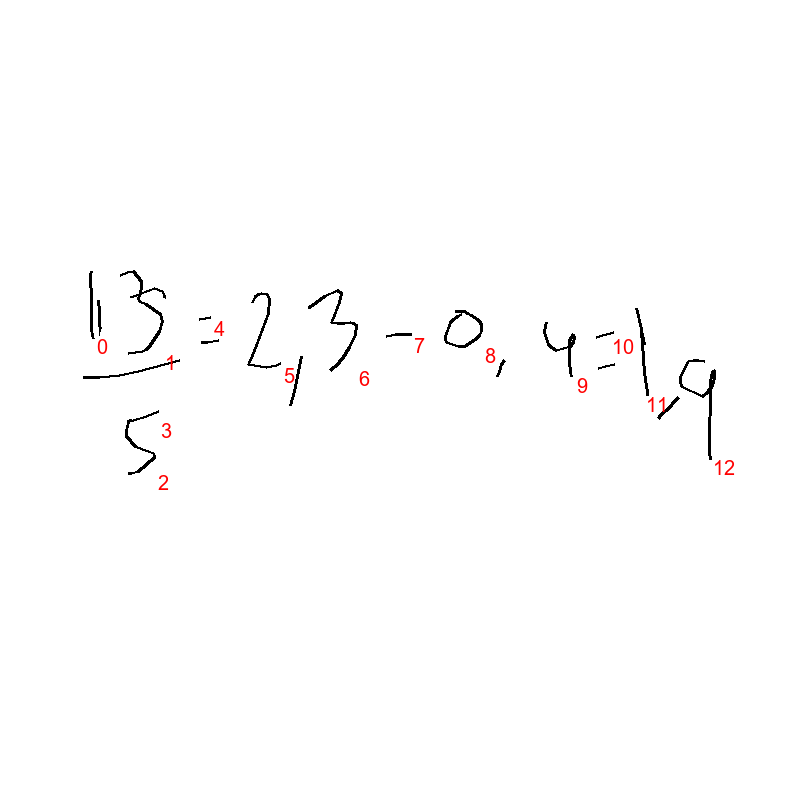 113
= 2,3 - 0,4 = 1,9
5
0 1 2 3 4 5 6 7 8 9 10 11 12